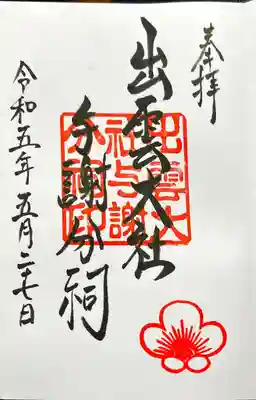 奉拝
出雲大社
与謝分祠
出雲大
社与謝
分祠印
令和五年五月二十七日